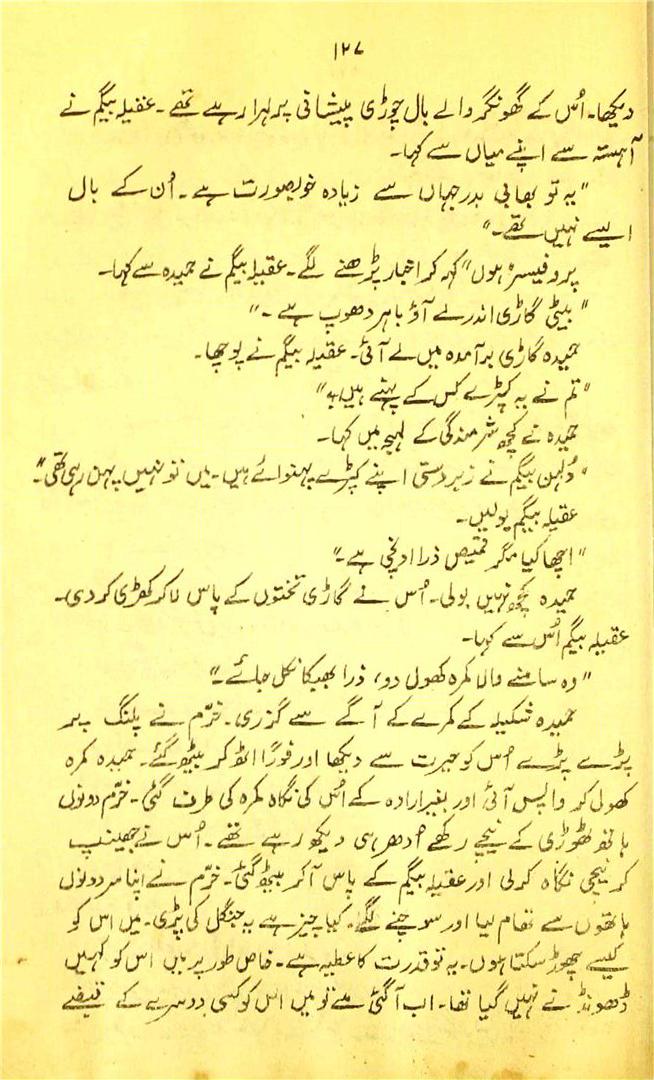 ۱۲۷
دیکھا۔ اُس کے گھونگر والے بال چوڑی پیشانی پر لہرا رہے تھے۔ عقیلہ بیگم نے
آہستہ سے اپنے میاں سے کہا۔
"یہ تو بھابی بدر جہاں سے زیادہ خوبصورت ہے۔ اُن کے بال
ایسے نہیں تھے۔"
پروفیسر "ہوں" کہہ کر اخبار پڑھنے لگے۔ عقیلہ بیگم نے حمیدہ سے کہا۔
"بیٹی گاڑی اندر لے آؤ باہر دھوپ ہے۔"
حمیدہ گاڑی برآمدہ میں لے آئی۔ عقیلہ بیگم نے پوچھا۔
"تم نے یہ کپڑے کس کے پہنے ہیں؟"
حمیدہ نے کچھ شرمندگی کے لہجہ میں کہا۔
"دُلہن بیگم نے زبردستی اپنے کپڑے پہنوائے ہیں۔ میں تو نہیں پہن رہی تھی۔"
عقیلہ بیگم بولیں۔
"اچھا کیا مگر قمیص ذرا اونچی ہے۔"
حمیدہ کچھ نہیں بولی۔ اُس نے گاڑی تختوں کے پاس لا کر کھڑی کر دی۔
عقیلہ بیگم اُس سے کہا۔
"وہ سامنے والا کمرہ کھول دو، ذرا بھبکا نکل جائے۔"
حمیدہ شکیلہ کے کمرے کے آگے سے گزری۔ خرّم نے پلنگ پر
پڑے پڑے اُس کو حیرت سے دیکھا اور فوراً اٹھ کر بیٹھ گئے۔ حمیدہ کمرہ
کھول کر واپس آئی اور بغیر ارادہ کے اُس کی نگاہ کمرہ کی طرف گئی۔ خرّم دونوں
ہاتھ ٹھوڑی کے نیچے رکھے اُدھر ہی دیکھ رہے تھے۔ اُس نے جھینپ
کر نیچی نگاہ کر لی اور عقیلہ بیگم کے پاس آ کر بیٹھ گئی۔ خرّم نے اپنا سر دونوں
ہاتھوں سے تھام لیا اور سوچنے لگے۔ کیا چیز ہے یہ جنگل کی پڑی۔ میں اس کو
کیسے چھوڑ سکتا ہوں۔ یہ تو قدرت کا عطیہ ہے۔ خاص طور پر میں اس کو کہیں
ڈھونڈنے نہیں گیا تھا۔ اب آ گئی ہے تو میں اس کو کسی دوسرے کے قبضے